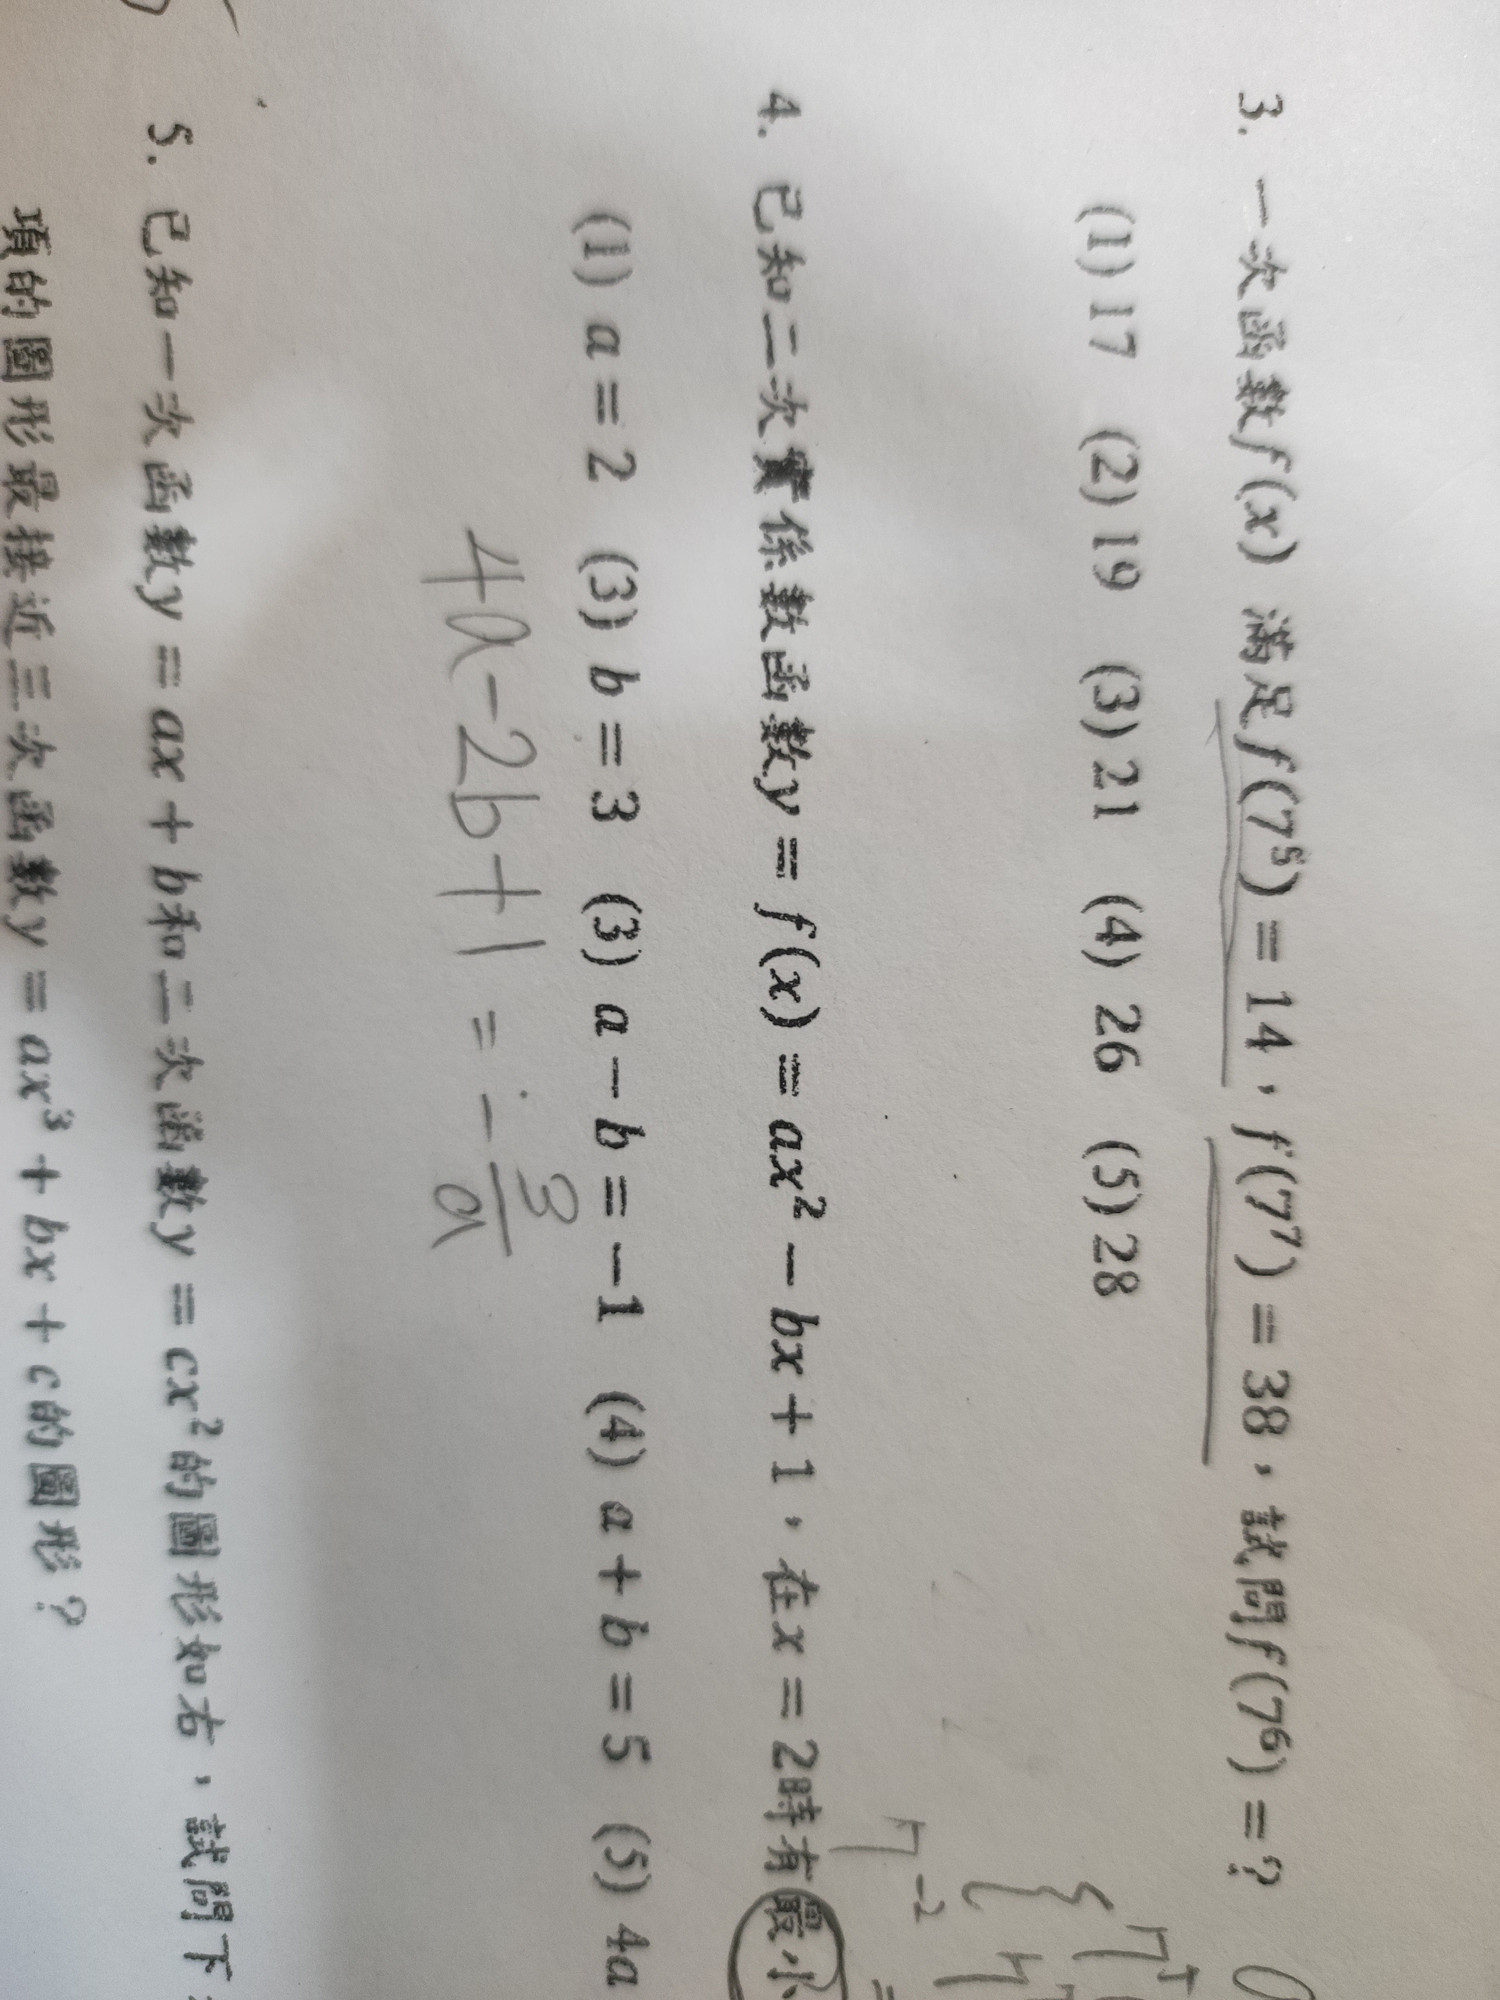 3. 一次函數f(x) 滿足f(7⁵) = 14，f(7⁷) = 38，試問f(7⁶) = ?
(1) 17 (2) 19 (3) 21 (4) 26 (5) 28
7⁻²
4. 已知二次實係數函數y = f(x) = ax² − bx + 1，在x = 2時有最小
(1) a = 2 (3) b = 3 (3) a − b = −1 (4) a + b = 5 (5) 4a
4a-2b+1 = -3/a
5. 已知一次函數y = ax + b和二次函數y = cx²的圖形如右，試問下
項的圖形最接近三次函數y = ax³ + bx + c的圖形？